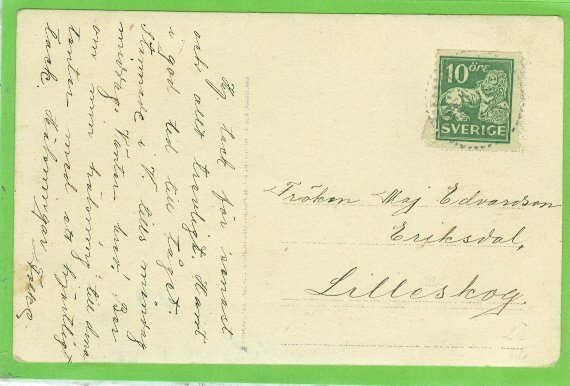 Hj tack för senast
och allt trevligt. Hann
i god tid till tåget.
Stannade i V tills måndag
middag. Väntar bud. Ber
om min hälsning till dina
tanter med ett hjärtligt
tack. Hälsningar
10 ÖRE
SVERIGE
Fröken Maj Edvardson
Eriksdal,
Lilleskog.